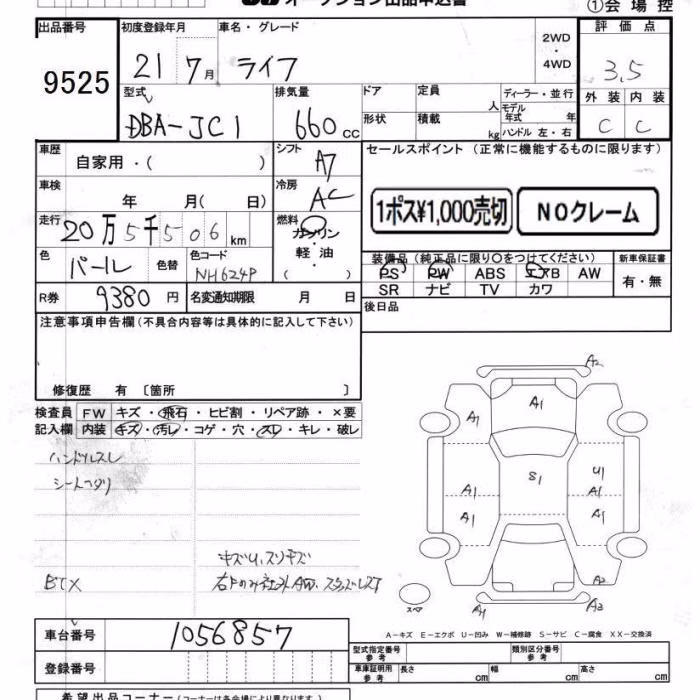 オークション出品申込書
①会場控
出品番号
9525
初度登録年月
21 7月
車名・グレード
ライフ
2WD
・
4WD
評価点
3.5
外装 内装
C C
型式
DBA-JC1
排気量
660cc
ドア
定員
人
形状
積載
kg
ディーラー・並行
モデル年式 年
ハンドル 左・右
車歴
自家用・( )
シフト
A7
冷房
AC
車検
年 月( 日)
走行
20万5千506km
燃料
ガソリン
・
軽油
・
( )
色
パール
色替
色コード
NH624P
R券
9380円
名変通知期限 月 日
セールスポイント (正常に機能するものに限ります)
1ポス¥1,000売切
NOクレーム
装備品(純正品に限り〇をつけてください)
PS PW ABS エアB AW
SR ナビ TV カワ
新車保証書
有・無
後日品
注意事項申告欄(不具合内容等は具体的に記入して下さい)
修復歴 有 〔箇所 〕
検査員記入欄
FW キズ・飛石・ヒビ割・リペア跡・×要
内装 キズ・汚レ・コゲ・穴・スレ・キレ・破レ
ハンドルスレ
シートコゲリ
キズU.スリキズ
BEX
A2
A1
A1
A1
S1
U1
A1
A1
A1
A1
A2
A1
A3
スペア
A-キズ E-エクボ U-凹み W-補修跡 S-サビ C-腐食 XX-交換済
車台番号
1056857
登録番号
型式指定番号
参考
類別区分番号
参考
車庫証明用
参考
長さ cm
幅 cm
高さ cm
希望出品コーナー(コーナーは各会場により異なります。)